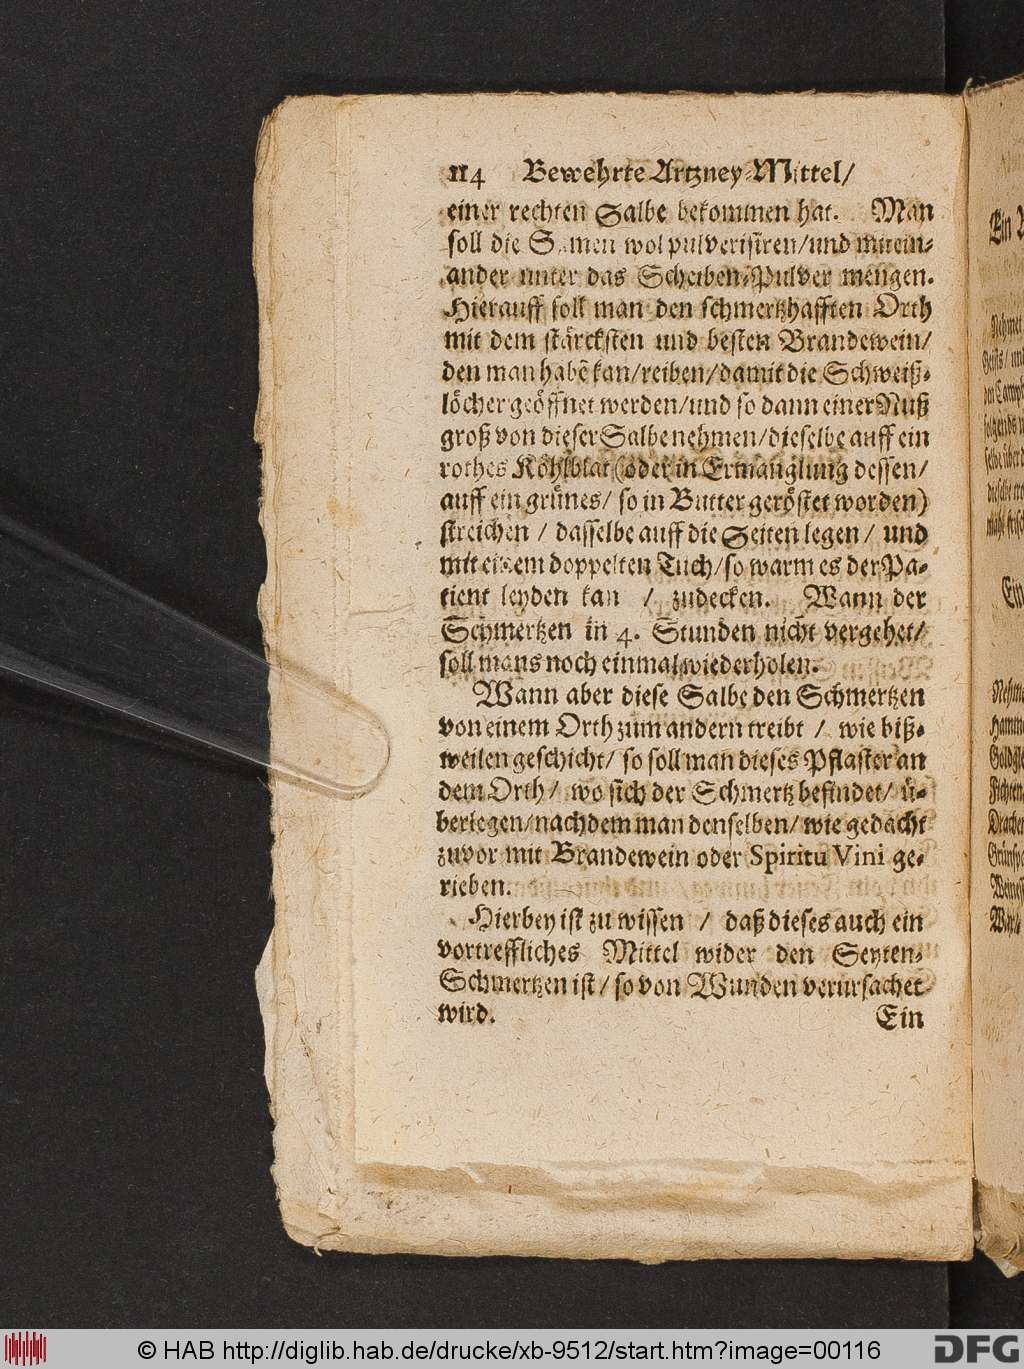 114 Bewehrte Artzney-Mittel/
einer rechten Salbe bekommen hat. Man
soll die Samen wol pulverisiren/und mitein-
ander unter das Scheiben-Pulver mengen.
Hierauff soll man den schmertzhafften Orth
mit dem stärcksten und besten Brandewein/
den man habẽ kan/reiben/damit die Schweiß-
löcher geöffnet werden/und so dann einer Nuß
groß von dieser Salbe nehmen/dieselbe auff ein
rothes Köhlblat (oder in Ermanglung dessen/
auff ein grünes/ so in Butter geröstet worden)
streichen / dasselbe auff die Seiten legen / und
mit einem doppelten Tuch/so warm es der Pa-
tient leyden kan / zudecken. Wann der
Schmertzen in 4. Stunden nicht vergehet/
soll mans noch einmal wiederholen.
Wann aber diese Salbe den Schmertzen
von einem Orth zum andern treibt / wie biß-
weilen geschicht/ so soll man dieses Pflaster an
dem Orth/ wo sich der Schmertz befindet/ ü-
berlegen/nachdem man denselben/ wie gedacht
zuvor mit Brandewein oder Spiritu Vini ge-
rieben.
Hierbey ist zu wissen / daß dieses auch ein
vortreffliches Mittel wider den Seyten-
Schmertzen ist/ so von Wunden verursachet
wird. Ein
Ein
Nehmet
Geists/
Ein
Hamme
Fichten
Drachen
Grünsp
© HAB http://diglib.hab.de/drucke/xb-9512/start.htm?image=00116
DFG